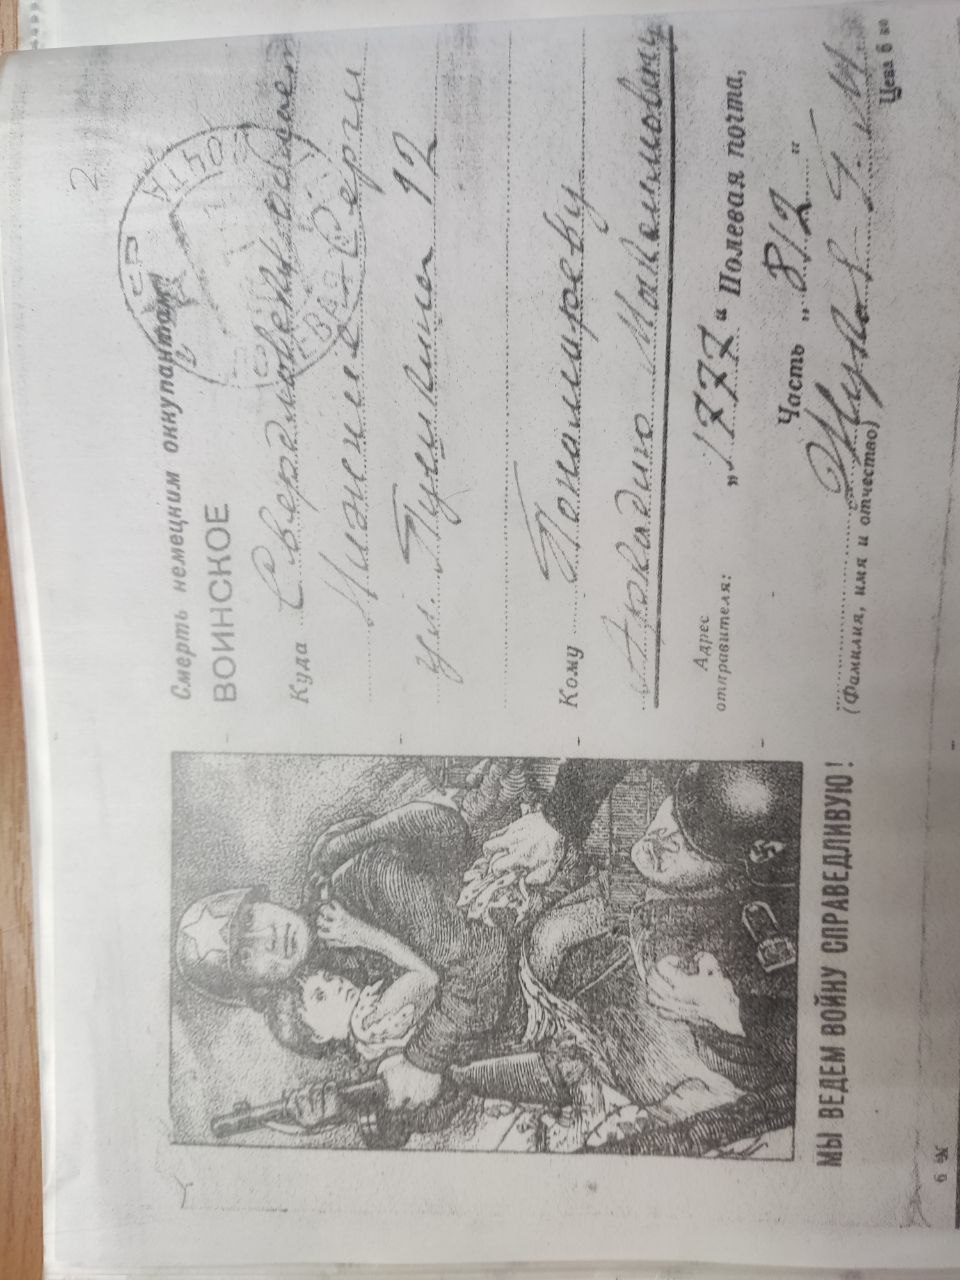 2
Смерть немецким оккупантам!
ВОИНСКОЕ
Куда Свердловская област
Нижние Серги
ул. Пушкина 12
Кому
Аркадию Михайловичу
Адрес отправителя:
„1777“ Полевая почта,
Часть „812“
(Фамилия, имя и отчество)
Цена 6 ко
МЫ ВЕДЕМ ВОЙНУ СПРАВЕДЛИВУЮ!
№ 9